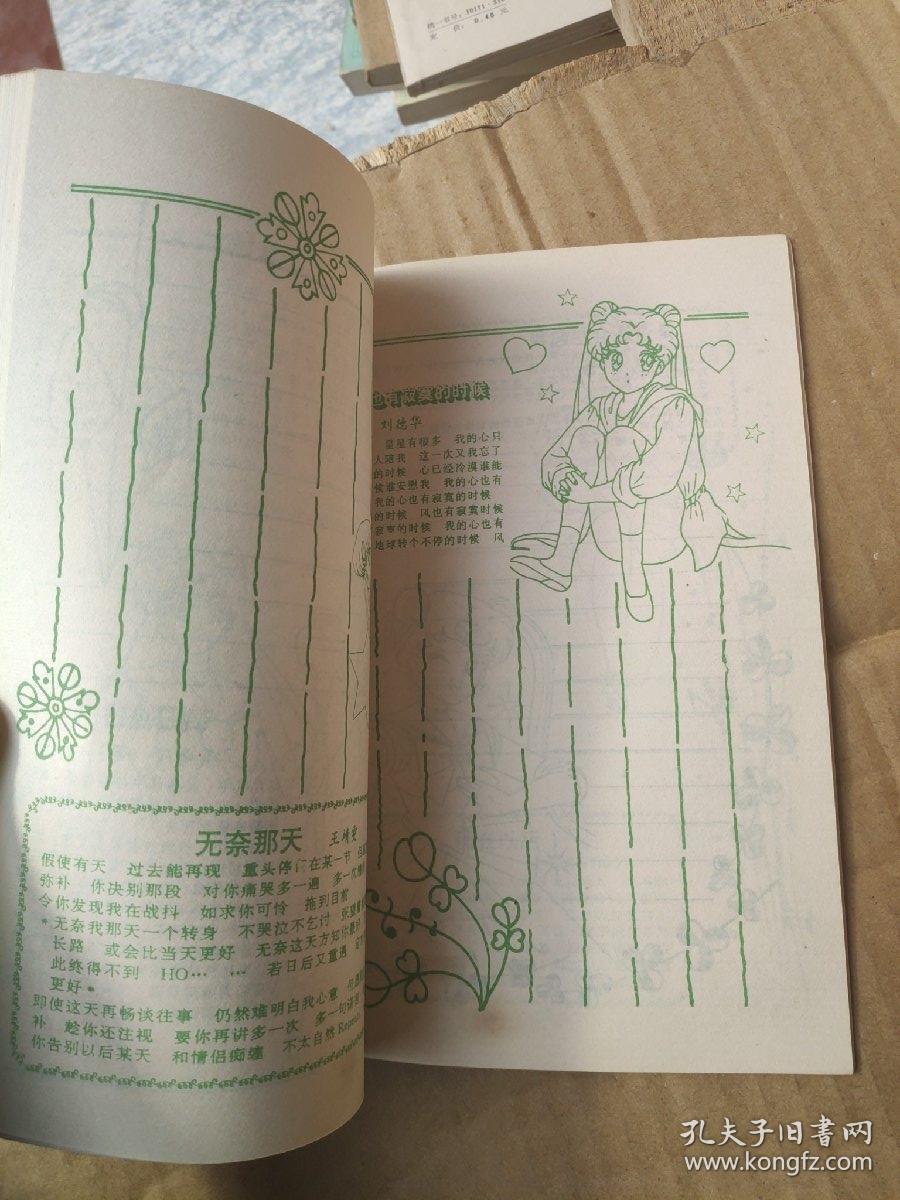 统一书号：10171·
定 价： 0.45 元
也有寂寞的时候
刘德华
星星有很多 我的心只
人陪我 这一次又我忘了
的时候 心已经冷漠谁能
候谁安慰我 我的心也有
我的心也有寂寞的时候
的时候 风也有寂寞时候
寂寞的时候 我的心也有
地球转个不停的时候 风
无奈那天 王靖雯
假使有天 过去能再现 重头停门在某一节
弥补 你决别那段 对你痛哭多一遍 多一次
令你发现我在战抖 如求你可怜 拖到目前
*无奈我那天一个转身 不哭泣不乞讨
长路 或会比当天更好 无奈这天方知你最好
此终得不到 HO… … 若日后又重遇
更好*
即使这天再畅谈往事 仍然难明白我心意
补 趁你还注视 要你再讲多一次 多一句
你告别以后某天 和情侣痴缠 不太自然 Repeat
孔夫子旧书网
www.kongfz.com